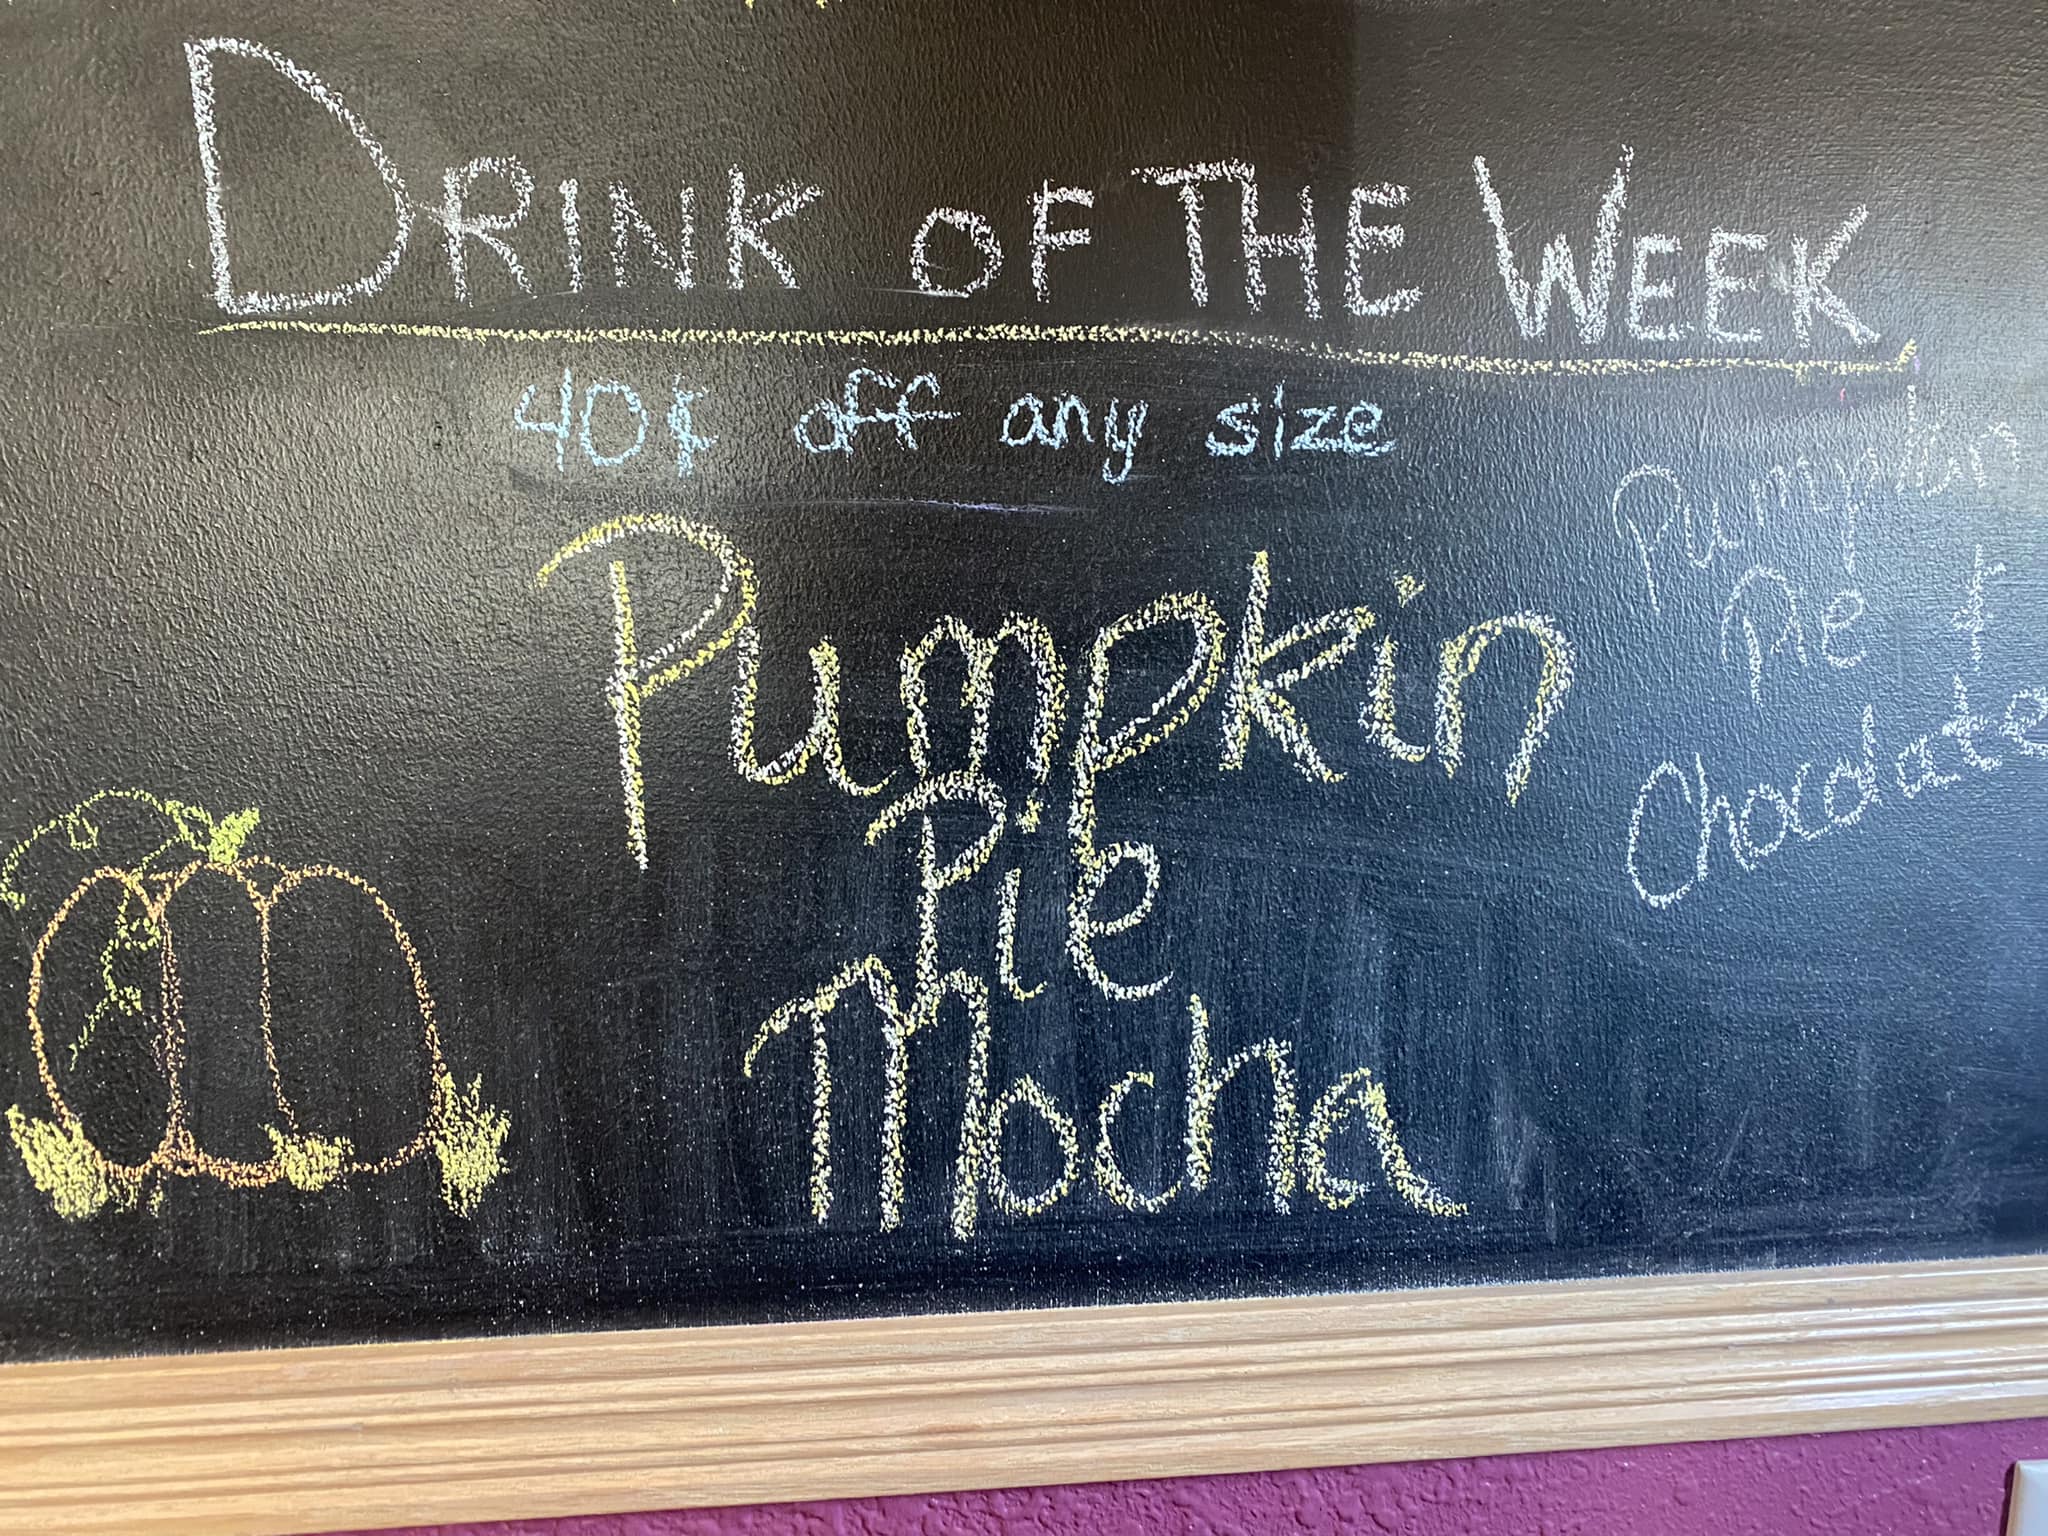 DRINK OF THE WEEK
40¢ off any size
Pumpkin
Pie
Mocha
Pumpkin
Pie +
Chocolate